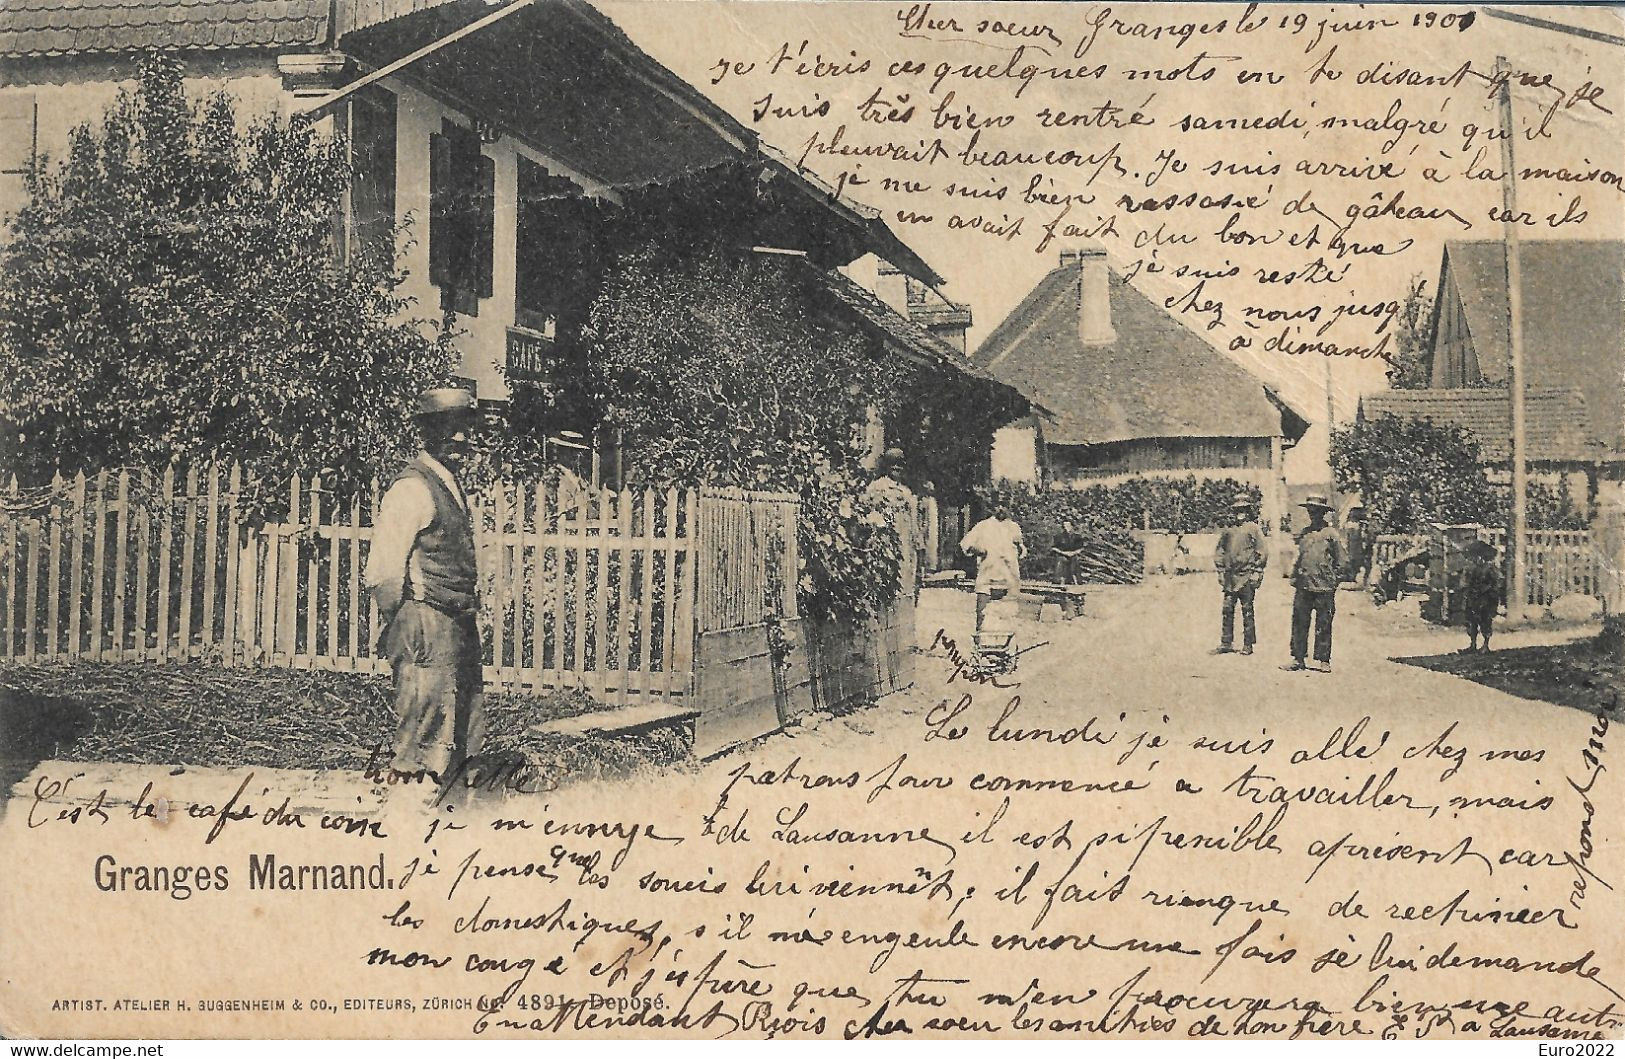 Cher soeur Granges le 19 juin 1901
Je t'écris ces quelques mots en te disant que je
suis très bien rentré samedi, malgré qu'il
pleuvait beaucoup. Je suis arrivé à la maison
je me suis bien rassasié de gâteau car ils
en avait fait du bon et que
je suis resté
chez nous jusq'
à dimanche
CAFÉ
pumpon
Le lundi je suis allé chez mes
patrons pour commencé a travailler, mais
trompette
C'est le café du coin je m'ennuye de Lausanne il est si penible apresent car
Granges Marnand.
je pense que les soucis lui viennent, il fait rienque de rectinieer
les domestiques, s'il m'engeule encore une fois je lui demande
mon congé et j'espère que tu m'en procurera bien une autr
ARTIST. ATELIER H. GUGGENHEIM & CO., EDITEURS, ZÜRICH No. 4891. Deposé.
En attendant Reçois cher soeur les amitiés de ton frère à Lausanne
repond
Euro2022